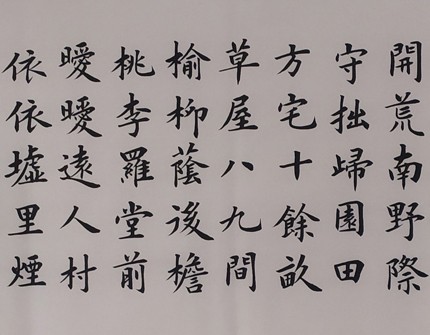 開荒南野際
守拙歸園田
方宅十餘畝
草屋八九間
榆柳蔭後檐
桃李羅堂前
曖曖遠人村
依依墟里煙